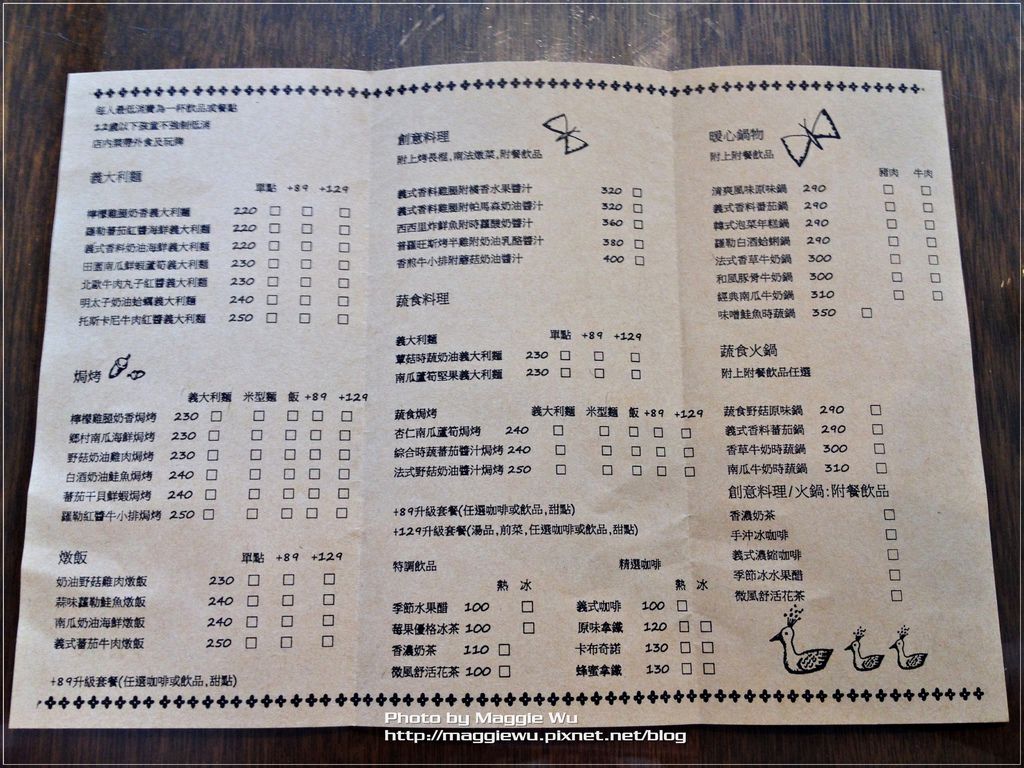 每人最低消費為一杯飲品或餐點
12歲以下孩童不強制低消
店內禁帶外食及玩牌
義大利麵
單點 +89 +129
檸檬雞腿奶香義大利麵 220 □ □ □
羅勒蕃茄紅醬海鮮義大利麵 220 □ □ □
義式香料奶油海鮮義大利麵 220 □ □ □
田園南瓜鮮蝦蘆筍義大利麵 230 □ □ □
北歐牛肉丸子紅醬義大利麵 230 □ □ □
明太子奶油蛤蠣義大利麵 240 □ □ □
托斯卡尼牛肉紅醬義大利麵 250 □ □ □
焗烤
義大利麵 米型麵 飯 +89 +129
檸檬雞腿奶香焗烤 230 □ □ □ □ □
鄉村南瓜海鮮焗烤 230 □ □ □ □ □
野菇奶油雞肉焗烤 230 □ □ □ □ □
白酒奶油鮭魚焗烤 240 □ □ □ □ □
蕃茄干貝鮮蝦焗烤 240 □ □ □ □ □
羅勒紅醬牛小排焗烤 250 □ □ □ □ □
燉飯
單點 +89 +129
奶油野菇雞肉燉飯 230 □ □ □
蒜味蘿勒鮭魚燉飯 240 □ □ □
南瓜奶油海鮮燉飯 240 □ □ □
義式蕃茄牛肉燉飯 250 □ □ □
+89升級套餐(任選咖啡或飲品,甜點)
創意料理
附上烤長棍,南法燉菜,附餐飲品
義式香料雞腿附橘香水果醬汁 320 □
義式香料雞腿附帕馬森奶油醬汁 320 □
西西里炸鮮魚附時蘿酸奶醬汁 360 □
普羅旺斯烤半雞附奶油乳酪醬汁 380 □
香煎牛小排附蘑菇奶油醬汁 400 □
蔬食料理
義大利麵 單點 +89 +129
蕈菇時蔬奶油義大利麵 230 □ □ □
南瓜蘆筍堅果義大利麵 230 □ □ □
蔬食焗烤 義大利麵 米型麵 飯 +89 +129
杏仁南瓜蘆筍焗烤 240 □ □ □ □ □
綜合時蔬蕃茄醬汁焗烤 240 □ □ □ □ □
法式野菇奶油醬汁焗烤 250 □ □ □ □ □
+89升級套餐(任選咖啡或飲品,甜點)
+129升級套餐(湯品,前菜,任選咖啡或飲品,甜點)
特調飲品
熱 冰
季節水果醋 100 □
莓果優格冰茶 100 □
香濃奶茶 110 □
微風舒活花茶 100 □
精選咖啡
義式咖啡 100 □
原味拿鐵 120 □ □
卡布奇諾 130 □ □
蜂蜜拿鐵 130 □ □
暖心鍋物
附上附餐飲品
豬肉 牛肉
清爽風味原味鍋 290 □ □
義式香料蕃茄鍋 290 □ □
韓式泡菜年糕鍋 290 □ □
羅勒白酒蛤蜊鍋 290 □ □
法式香草牛奶鍋 300 □ □
和風豚骨牛奶鍋 300 □ □
經典南瓜牛奶鍋 310 □ □
味噌鮭魚時蔬鍋 350 □
蔬食火鍋
附上附餐飲品任選
蔬食野菇原味鍋 290 □
義式香料蕃茄鍋 290 □
香草牛奶時蔬鍋 300 □
南瓜牛奶時蔬鍋 310 □
創意料理/火鍋:附餐飲品
香濃奶茶 □
手沖冰咖啡 □
義式濃縮咖啡 □
季節冰水果醋 □
微風舒活花茶 □
Photo by Maggie Wu
http://maggiewu.pixnet.net/blog